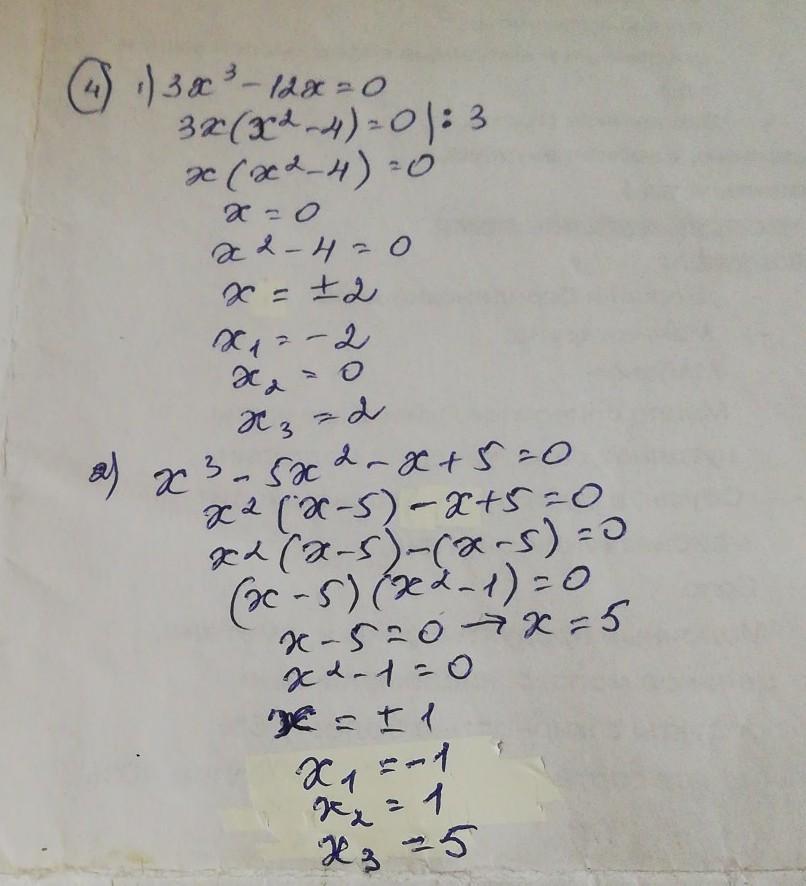 4) 1) 3x³ - 12x = 0
3x(x² - 4) = 0 | : 3
x(x² - 4) = 0
x = 0
x² - 4 = 0
x = ±2
x₁ = -2
x₂ = 0
x₃ = 2
2) x³ - 5x² - x + 5 = 0
x²(x - 5) - x + 5 = 0
x²(x - 5) - (x - 5) = 0
(x - 5)(x² - 1) = 0
x - 5 = 0 → x = 5
x² - 1 = 0
x = ±1
x₁ = -1
x₂ = 1
x₃ = 5